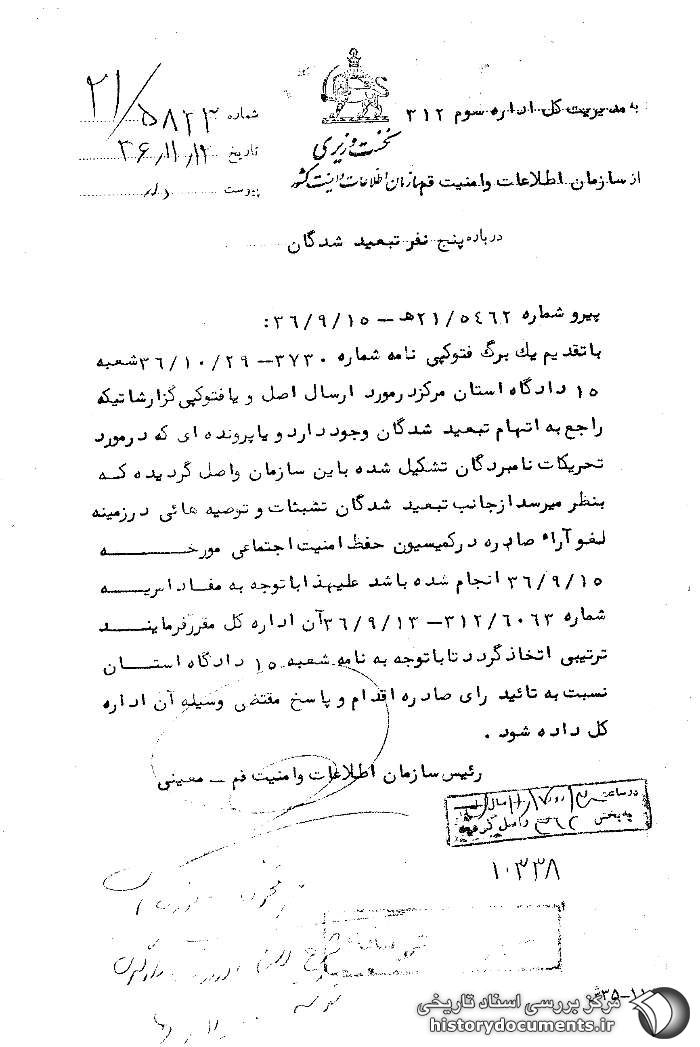 به مدیریت کل اداره سوم ۳۱۲
شماره ۲۱/۵۸۲۳
نخست وزیری
تاریخ ۳۶/۱۱/۱۲
از سازمان اطلاعات و امنیت قم سازمان اطلاعات و امنیت کشور
پیوست دارد
درباره پنج نفر تبعید شدگان
پیرو شماره ۲۱/۵٤٦۲ه‍ – ۳٦/۹/۱۵ :
با تقدیم یك برگ فتوکپی نامه شماره ۳۷۳۰– ۳٦/۱۰/۲۹ شعبه
۱۵ دادگاه استان مرکز در مورد ارسال اصل و یا فتوکپی گزارشاتیکه
راجع به اتهام تبعید شدگان وجود دارد و یا پرونده ای که در مورد
تحریکات نامبردگان تشکیل شده باین سازمان واصل گردیده کـه
بنظر میرسد از جانب تبعید شدگان تشبثات و توصیه هائی در زمینه
لغو آراء صادره در کمیسیون حفظ امنیت اجتماعی مورخـــه
۳٦/۹/۱۵ انجام شده باشد علیهذا با توجه به مفاد امریـــه
شماره ۳۱۲/٦۰٦۳– ۳٦/۹/۱۳ آن اداره کل مقرر فرماینــد
ترتیبی اتخاذ گردد تا با توجه به نامه شعبه ۱۵ دادگاه استــان
نسبت به تائید رای صادره اقدام و پاسخ مقتضی وسیله آن اداره
کل داده شود .
رئیس سازمان اطلاعات و امنیت قم – معینی
در ساعت روز ۱۷/۱۱ سال
به بخش ۳۶۲ واصل گردید
۱۰۳۳۸
۳۵-۱۱
مرکز بررسی اسناد تاریخی
historydocuments.ir